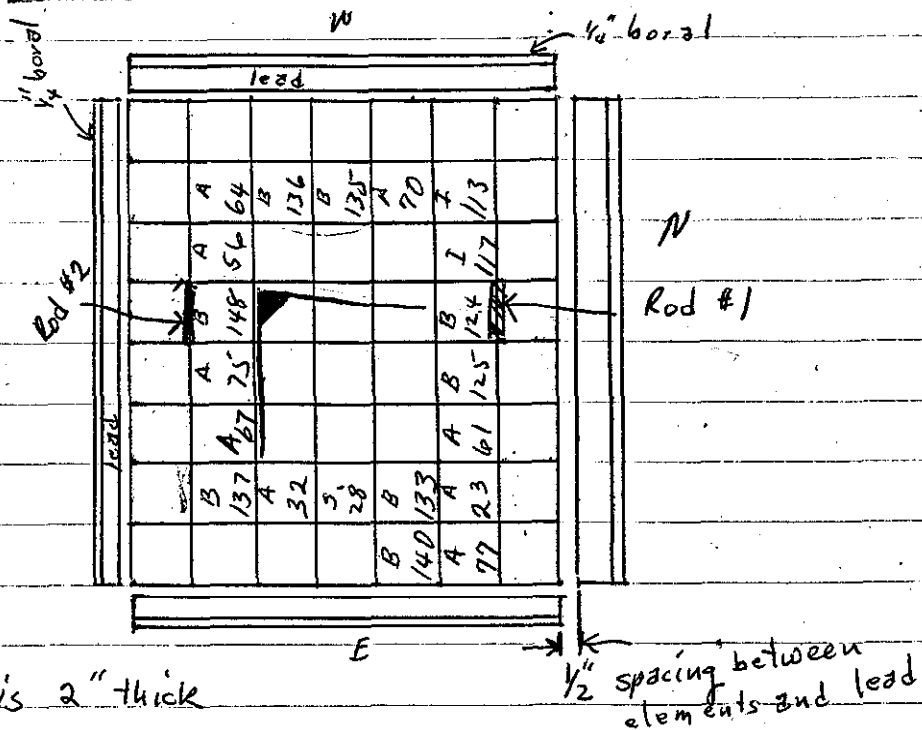 W
1/4" boral
1/4" boral
lead
A 64
B 136
B 135
A 70
I 113
A 56
I 117
N
Rod #2
B 148
B 124
Rod #1
A 75
B 125
A 67
A 61
lead
B 137
A 32
S 28
B 133
A 23
B 140
A 77
E
is 2" thick
1/2" spacing between
elements and lead